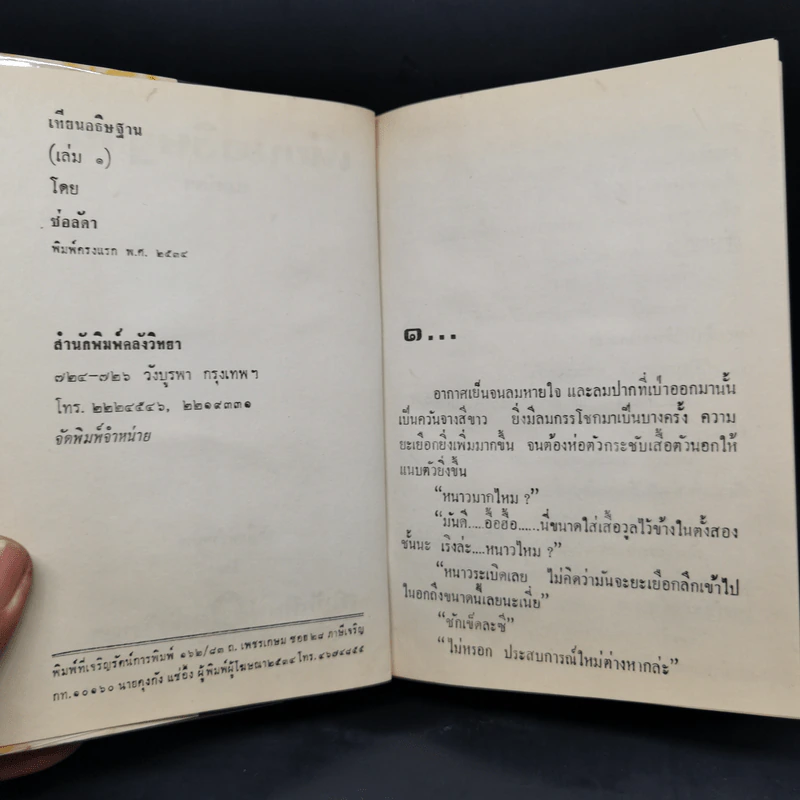 เทียนอธิษฐาน
(เล่ม ๑)
โดย
ช่อลัดา
พิมพ์ครั้งแรก พ.ศ. ๒๕๓๔
สำนักพิมพ์คลังวิทยา
๗๒๔–๗๒๖ วังบูรพา กรุงเทพฯ
โทร. ๒๒๒๔๕๔๖, ๒๒๑๙๓๓๑
จัดพิมพ์จำหน่าย
พิมพ์ที่เจริญรัตน์การพิมพ์ ๑๖๒/๘๓ ถ. เพชรเกษม ซอย ๒๘ ภาษีเจริญ
กท. ๑๐๑๖๐ นายคุงกัง แซ่อึ้ง ผู้พิมพ์ผู้โฆษณา ๒๕๓๔ โทร. ๔๖๗๔๘๕๕
๑...
อากาศเย็นจนลมหายใจ และลมปากที่เป่าออกมานั้น
เป็นควันจางสีขาว ยิ่งมีลมกรรโชกมาเป็นบางครั้ง ความ
ยะเยือกยิ่งเพิ่มมากขึ้น จนต้องห่อตัวกระชับเสื้อตัวนอกให้
แนบตัวยิ่งขึ้น
“หนาวมากไหม ?”
“มันดี.....อื้อฮื้อ......นี่ขนาดใส่เสื้อวูลไว้ข้างในตั้งสอง
ชั้นนะ เริงล่ะ....หนาวไหม ?”
“หนาวระเบิดเลย ไม่คิดว่ามันจะยะเยือกลึกเข้าไป
ในอกถึงขนาดนี้เลยนะเนี่ย”
“ชักเข็ดละซี”
“ไม่หรอก ประสบการณ์ใหม่ต่างหากล่ะ”